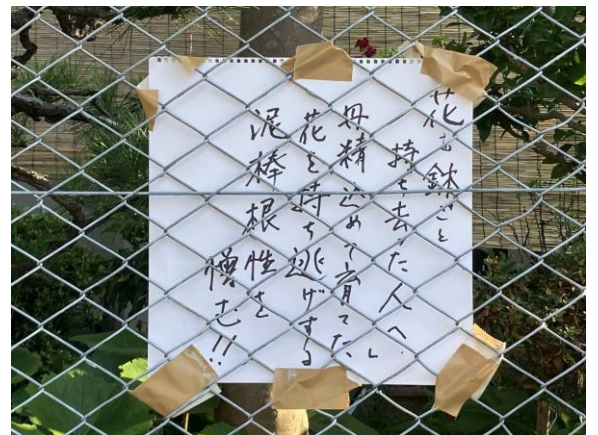 花を鉢ごと
持ち去った人へ.
丹精込めて育てた
花を持ち逃げする
泥棒根性を
憎む!!